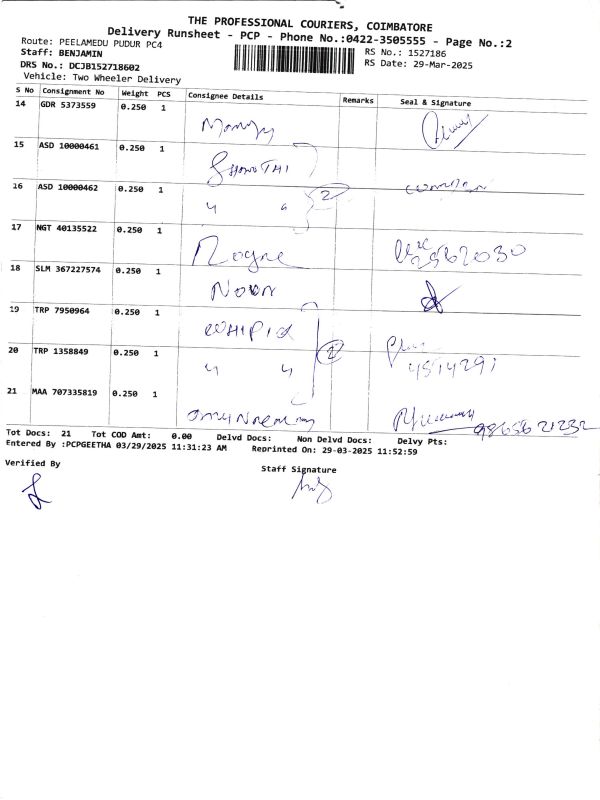 THE PROFESSIONAL COURIERS, COIMBATORE
Delivery Runsheet - PCP - Phone No.:0422-3505555 - Page No.:2
Route: PEELAMEDU PUDUR PC4
Staff: BENJAMIN
DRS No.: DCJB152718602
Vehicle: Two Wheeler Delivery
RS No.: 1527186
RS Date: 29-Mar-2025
S No Consignment No Weight PCS Consignee Details Remarks Seal & Signature
14 GDR 5373559 0.250 1
15 ASD 10000461 0.250 1
16 ASD 10000462 0.250 1 " " 2
17 NGT 40135522 0.250 1
18 SLM 367227574 0.250 1
19 TRP 7950964 0.250 1
20 TRP 1358849 0.250 1 " " 2
21 MAA 707335819 0.250 1
Tot Docs: 21 Tot COD Amt: 0.00 Delvd Docs: Non Delvd Docs: Delvy Pts:
Entered By :PCPGEETHA 03/29/2025 11:31:23 AM Reprinted On: 29-03-2025 11:52:59
Verified By Staff Signature